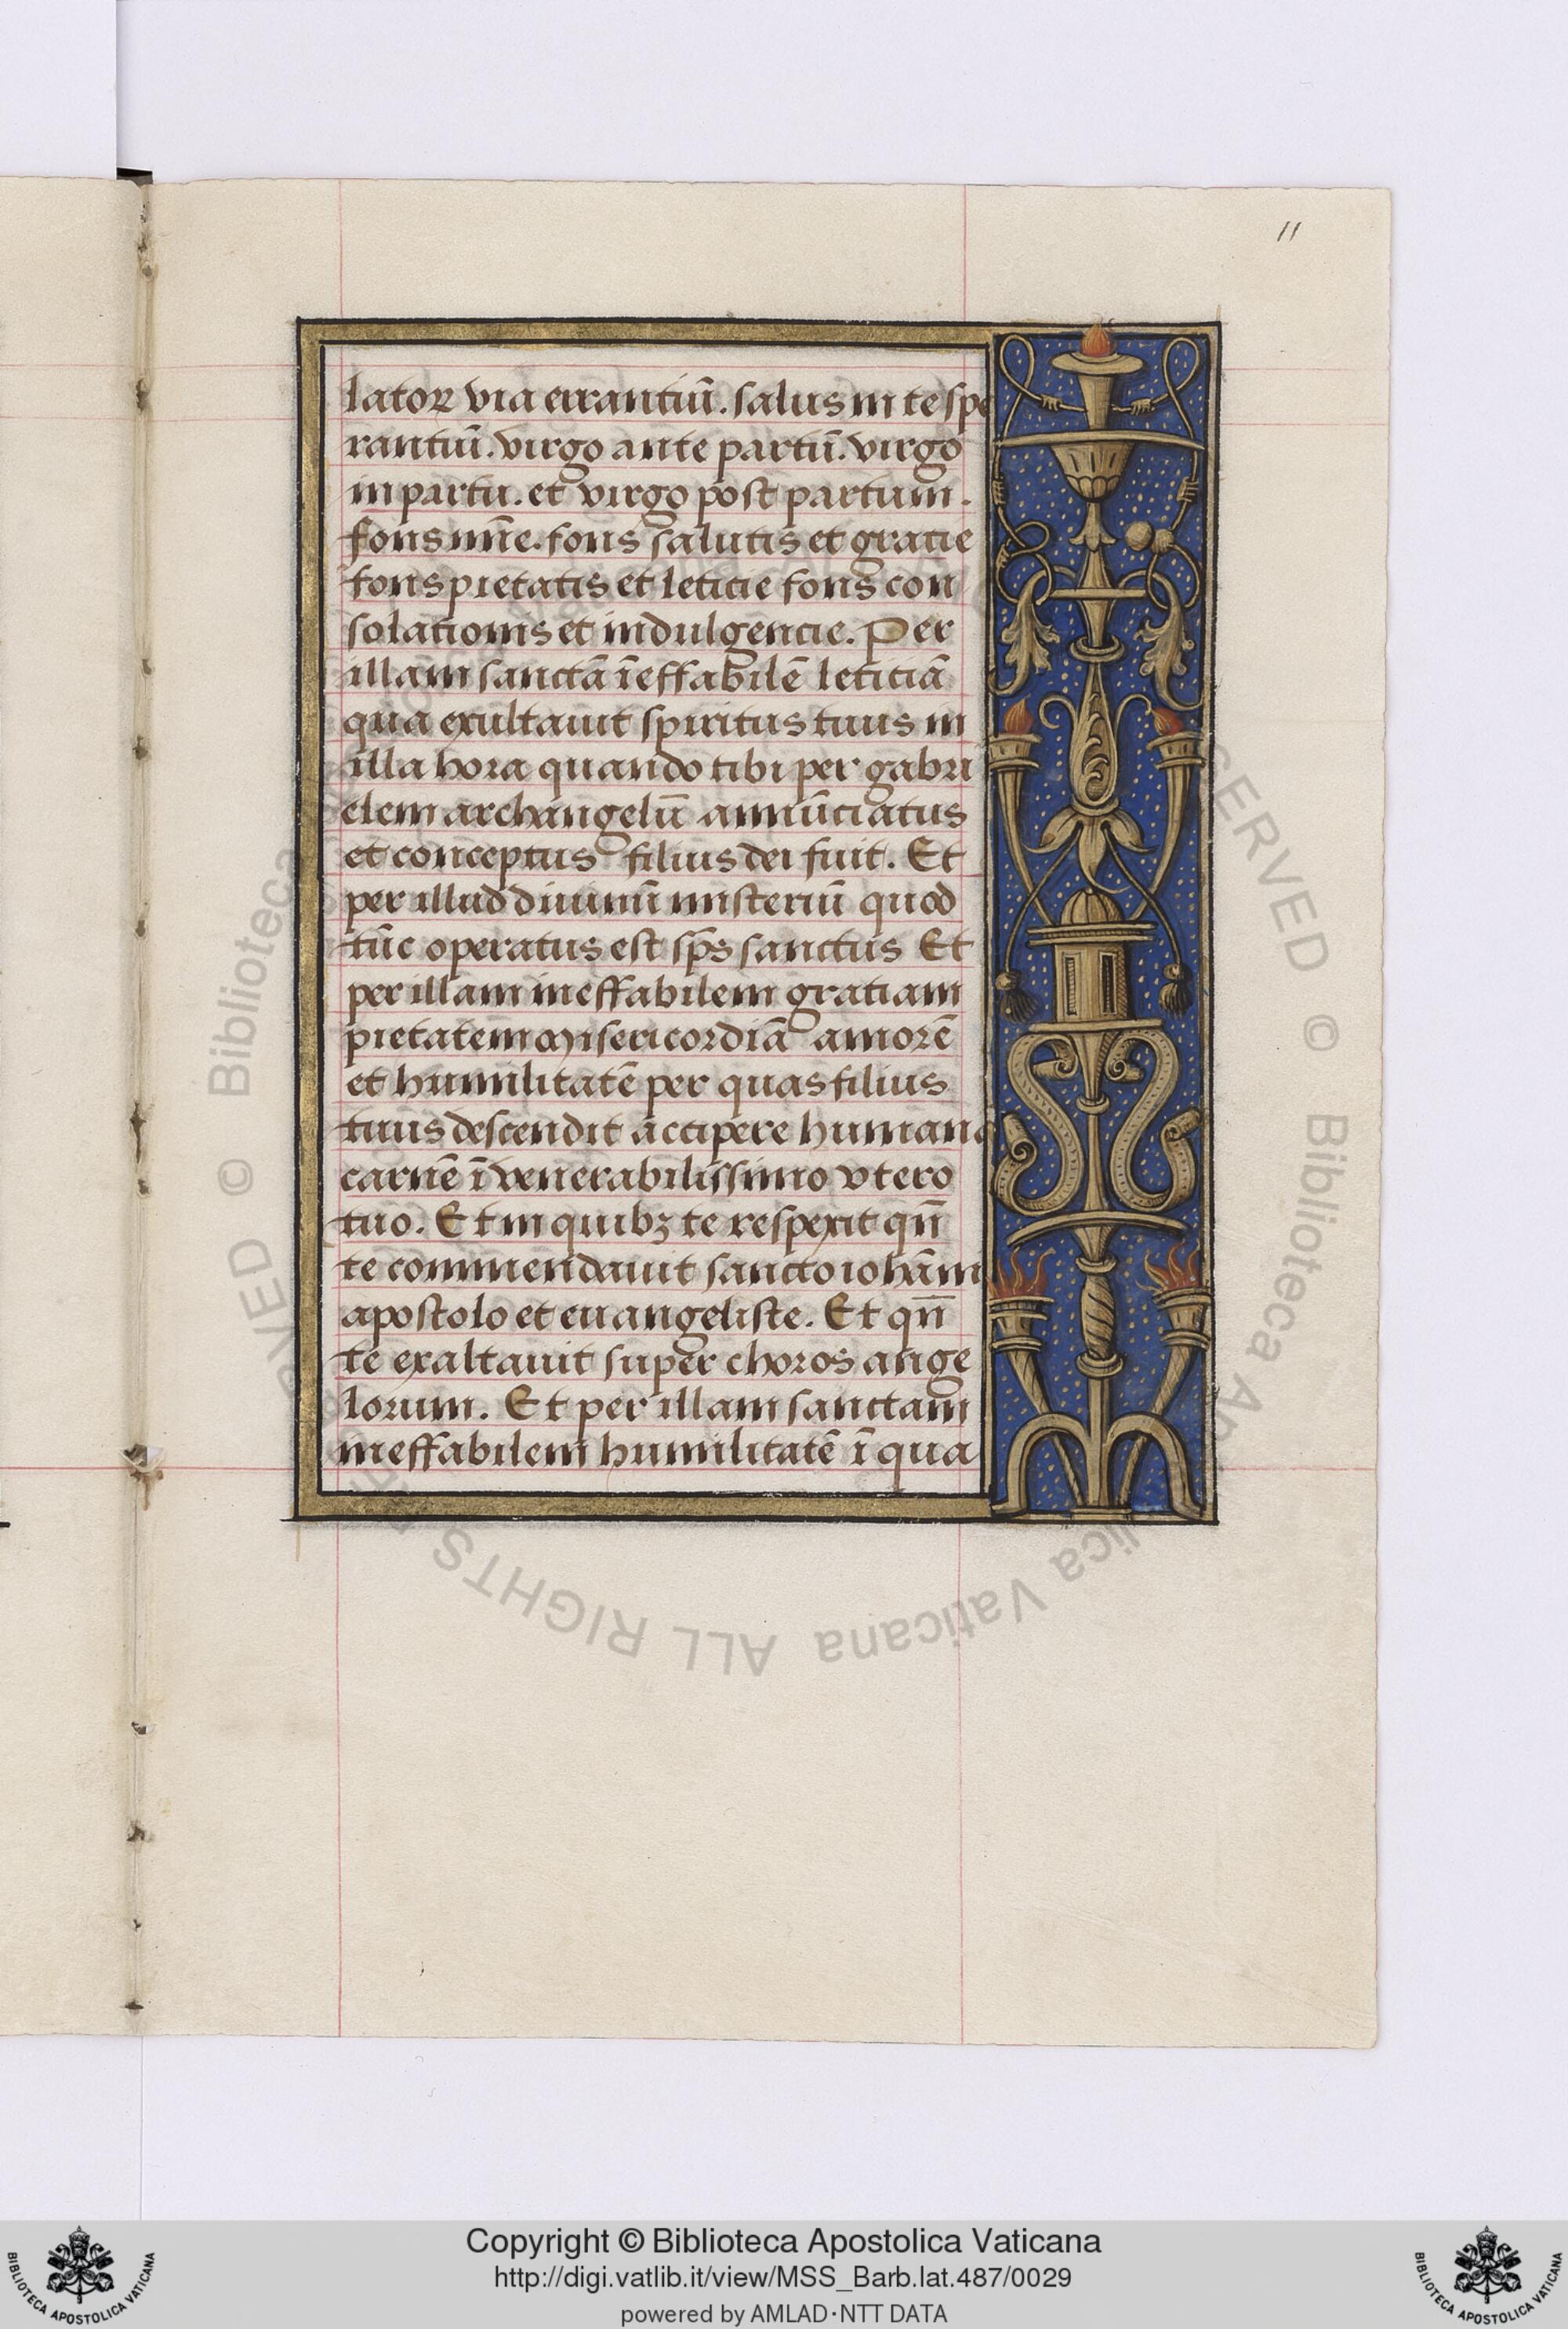 11
lator via errantiū. salus in te spe
rantiū. virgo ante partū. virgo
in partu. et virgo post partum.
fons mīe. fons salutis et gratie
fons pietatis et leticie fons con
solationis et indulgencie. Per
illam sanctā īeffabilē leticiā
qua exultauit spiritus tuus in
illa hora quando tibi per gabri
elem archangelū annūciatus
et conceptus filius dei fuit. Et
per illud diuinū misteriū quod
tūc operatus est sp̄s sanctus Et
per illam ineffabilem gratiam
pietatem misericordiā amorē
et humilitatē per quas filius
tuus descendit accipere humanā
carnē ī venerabilissimo vtero
tuo. Et in quibꝫ te respexit qn̄
te commendauit sancto iohānni
apostolo et euangeliste. Et qn̄
te exaltauit super choros ange
lorum. Et per illam sanctam
ineffabilem humilitatē ī qua
© Biblioteca Apostolica Vaticana ALL RIGHTS RESERVED
Copyright © Biblioteca Apostolica Vaticana
http://digi.vatlib.it/view/MSS_Barb.lat.487/0029
powered by AMLAD·NTT DATA
BIBLIOTECA APOSTOLICA VATICANA
BIBLIOTECA APOSTOLICA VATICANA